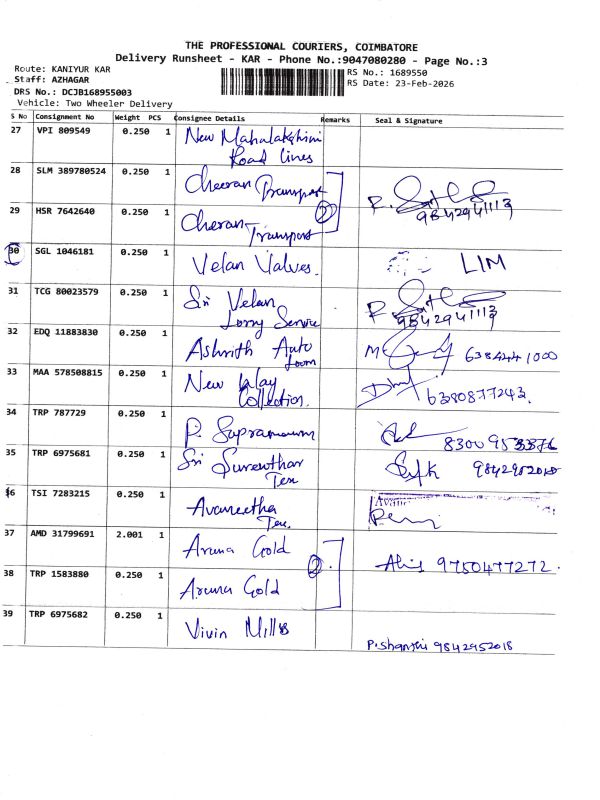 THE PROFESSIONAL COURIERS, COIMBATORE
Delivery Runsheet - KAR - Phone No.:9047080280 - Page No.:3
Route: KANIYUR KAR
Staff: AZHAGAR
DRS No.: DCJB168955003
Vehicle: Two Wheeler Delivery
RS No.: 1689550
RS Date: 23-Feb-2026
S No Consignment No Weight PCS Consignee Details Remarks Seal & Signature
27 VPI 809549 0.250 1 New Mahalakshmi
Road Lines
28 SLM 389780524 0.250 1 Cheeran Transport
29 HSR 7642640 0.250 1 Cheran Transport 2 9842941113
30 SGL 1046181 0.250 1 Velan Valves. LIM
31 TCG 80023579 0.250 1 Sri Velan
Lorry Service 9842941113
32 EDQ 11883830 0.250 1 Ashrith Auto
Loom 6384441000
33 MAA 578508815 0.250 1 New
Collection. 6380877243.
34 TRP 787729 0.250 1 P. 
35 TRP 6975681 0.250 1 Sri
Tex 9842952018
36 TSI 7283215 0.250 1 Avaneetha
Tex.
37 AMD 31799691 2.001 1 Aruna Gold
2 9750477272.
38 TRP 1583880 0.250 1 Aruna Gold
39 TRP 6975682 0.250 1 Vivin Mills
P. Shanthi 9842952018